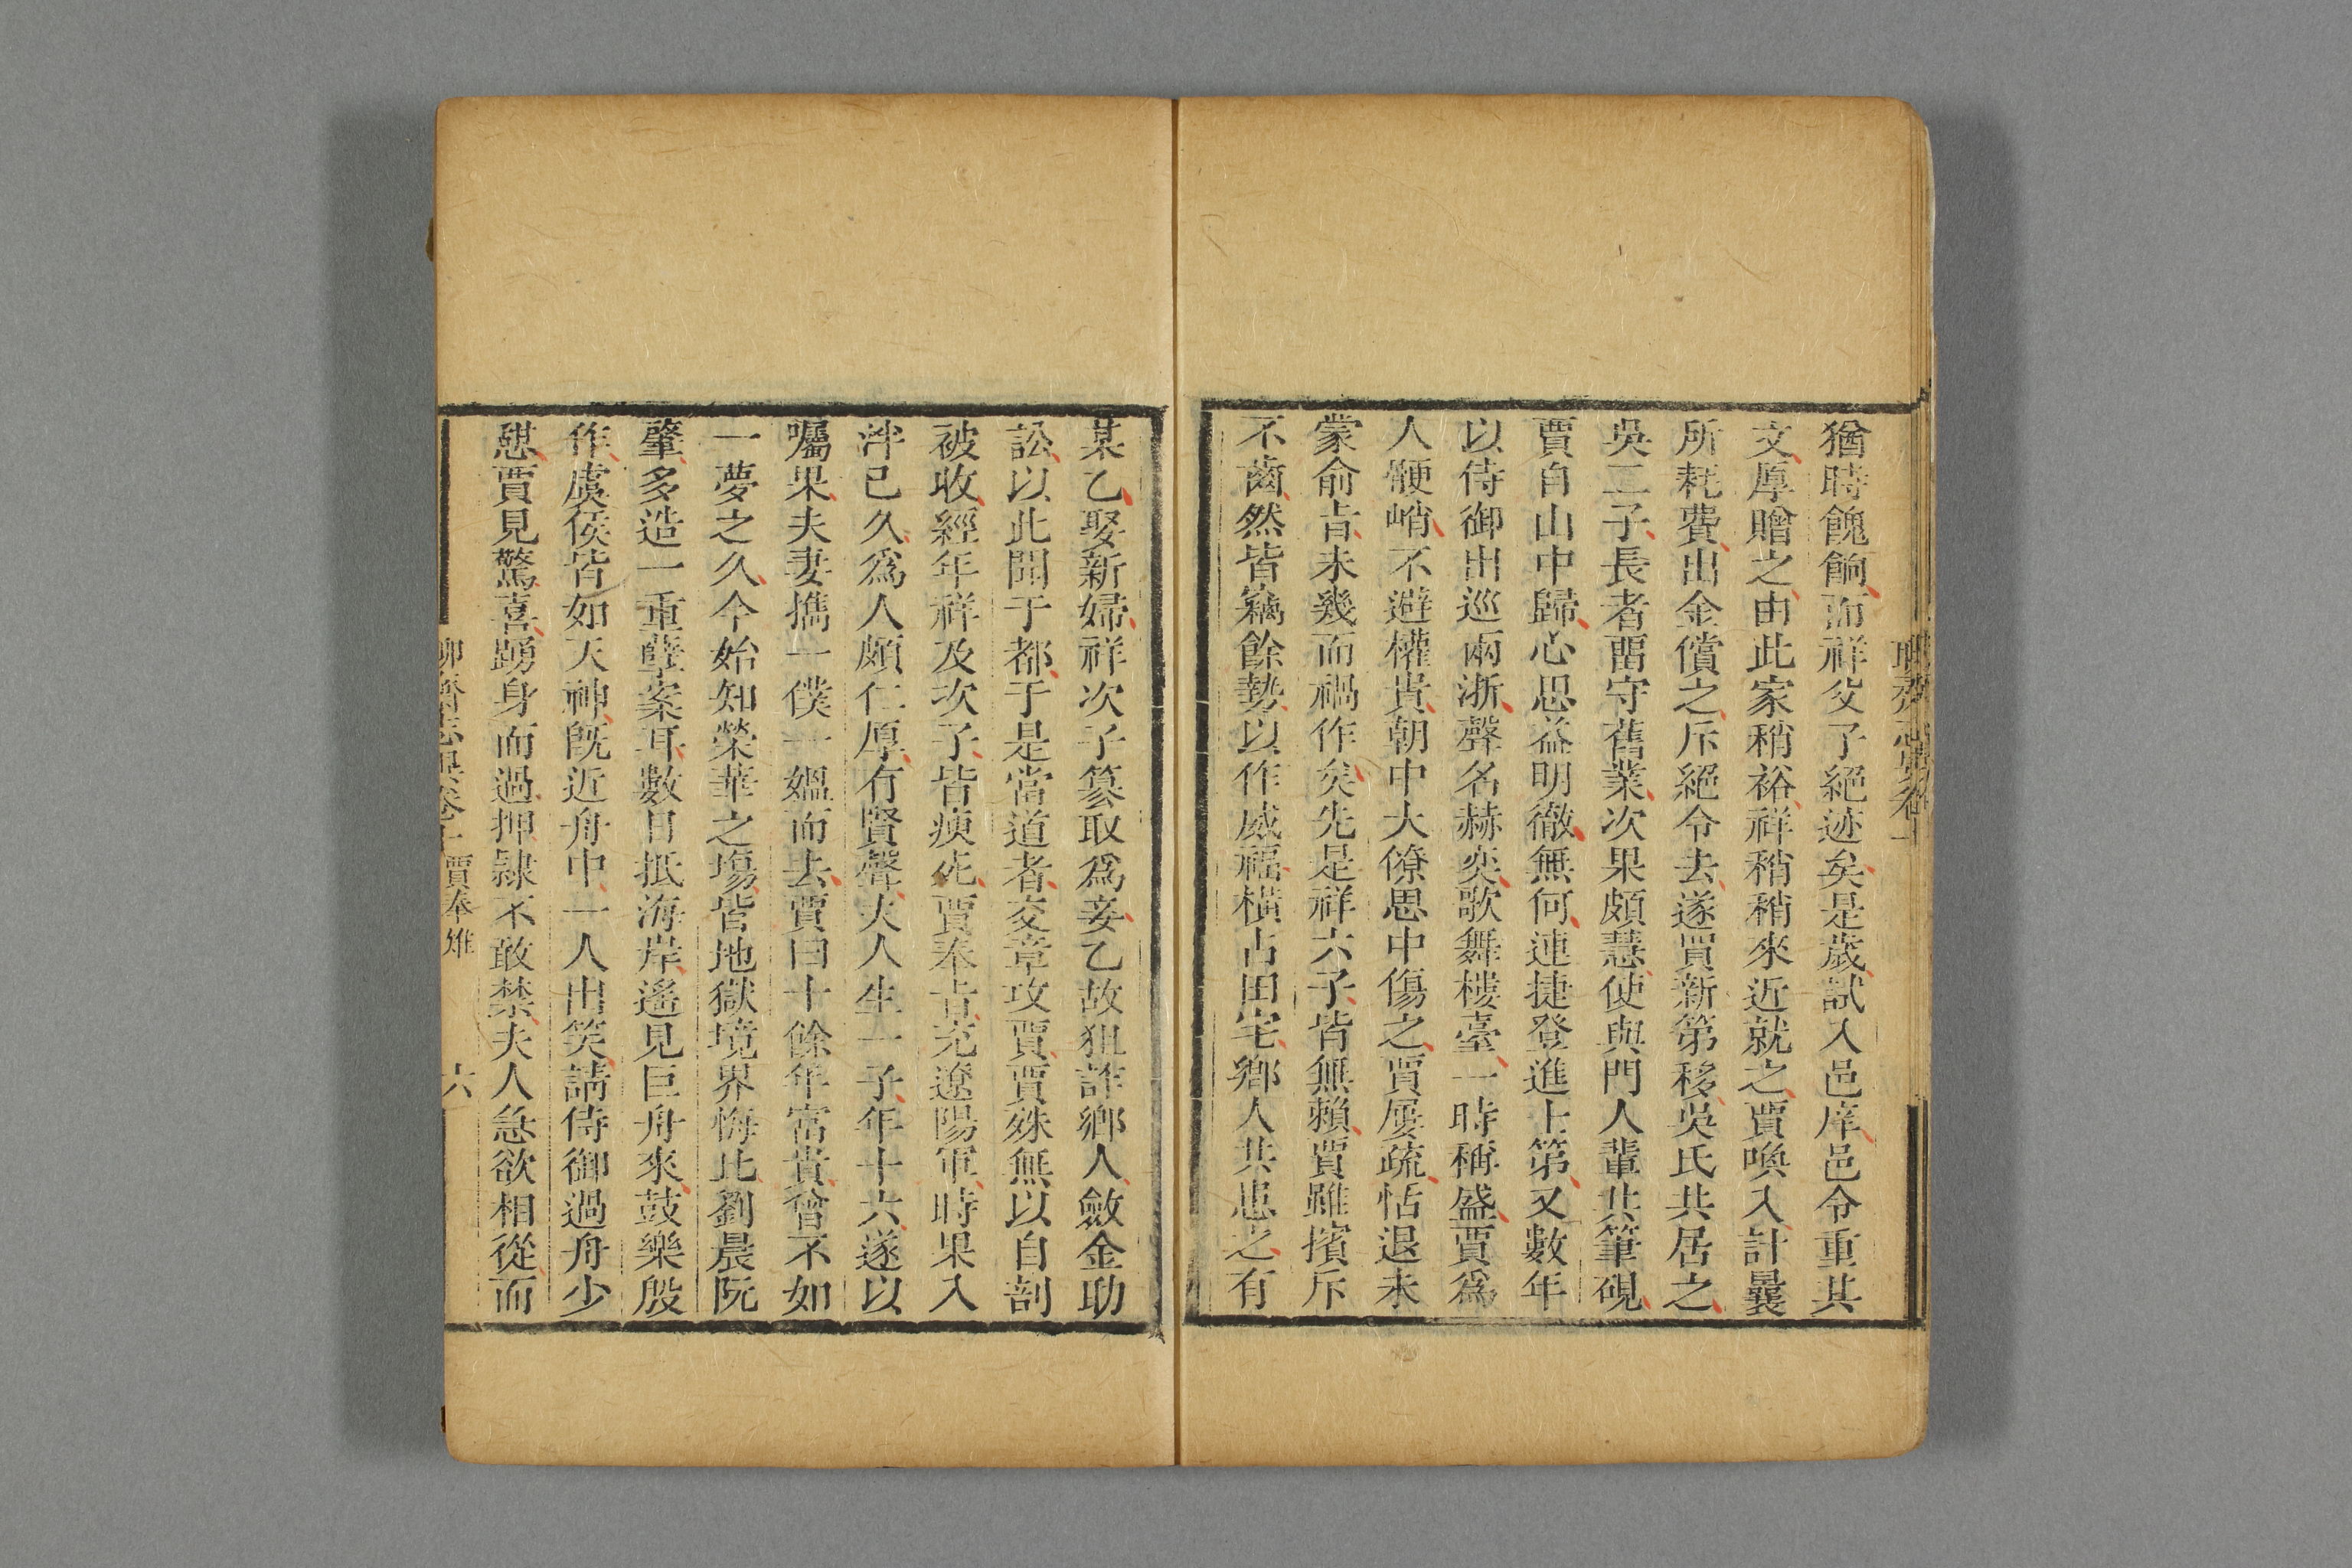 猶時餽餉而祥父子絕迹矣是歲試入邑庠邑令重其
文厚贈之由此家稍裕祥稍稍來近就之賈喚入計曩
所耗費出金償之斥絕令去遂買新第移吳氏共居之
吳二子長者畱守舊業次果頗慧使與門人輩共筆硯
賈自山中歸心思益明徹無何連捷登進士第又數年
以侍御出巡兩浙聲名赫奕歌舞樓臺一時稱盛賈爲
人鯁峭不避權貴朝中大僚思中傷之賈屢疏恬退未
蒙俞旨未幾而禍作矣先是祥六子皆無賴賈雖擯斥
不齒然皆竊餘勢以作威福橫占田宅鄉人共患之有
某乙娶新婦祥次子篡取爲妾乙故狙詐鄉人斂金助
訟以此聞于都于是當道者交章攻賈賈殊無以自剖
被收經年祥及次子皆瘐死賈奉旨充遼陽軍時果入
泮已久爲人頗仁厚有賢聲夫人生一子年十六遂以
囑果夫妻攜一僕一媼而去賈曰十餘年富貴曾不如
一夢之久今始知榮華之塲皆地獄境界悔比劉晨阮
肇多造一重孽案耳數日抵海岸遙見巨舟來鼓樂殷
作虞侯皆如天神旣近舟中一人出笑請侍御過舟少
憇賈見驚喜踴身而過押隸不敢禁夫人急欲相從而
聊齋志異卷十 賈奉雉 六